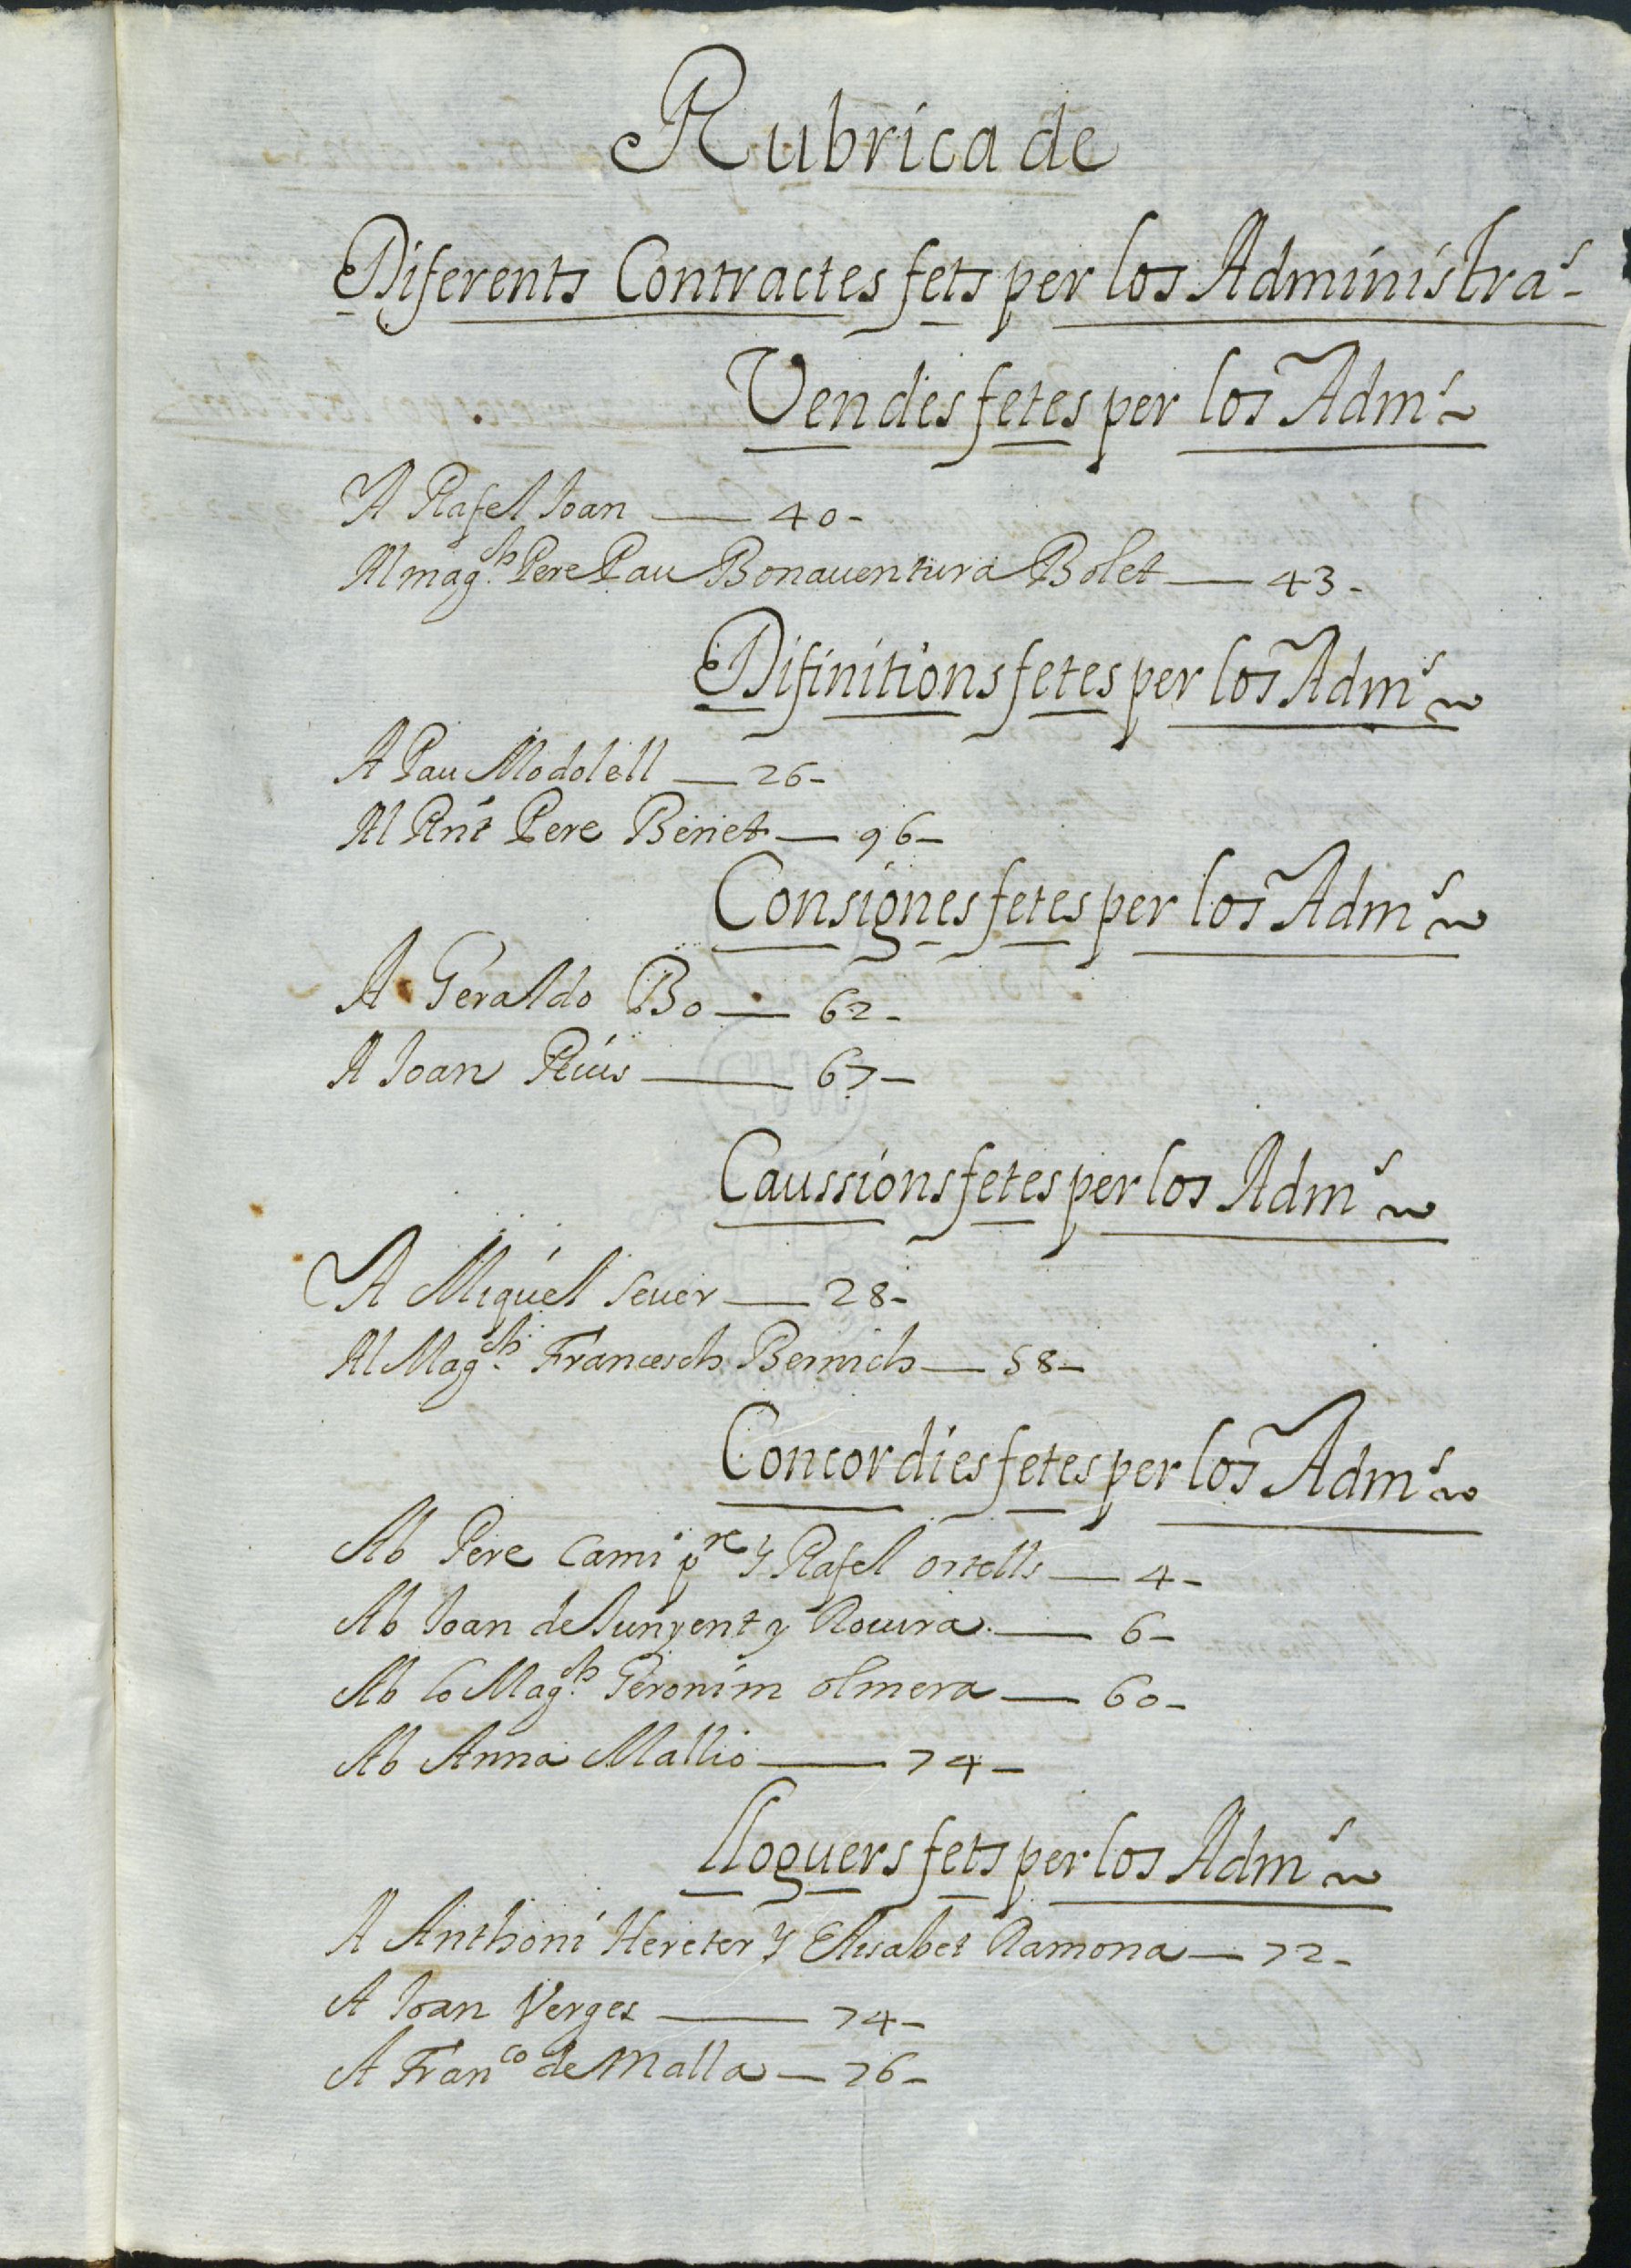 Rubrica de
Diferents Contractes fets per los Administra.s
Vendes fetes per los Adm.s
A Rafel Joan — 40-
Al mag.ch Pere Pau Bonauentura Bolet — 43-
Difinitions fetes per los Adm.s
A Pau Modolell — 26-
Al Rnt Pere Benet — 96-
Consignes fetes per los Adm.s
A Geraldo Bo — 62-
A Joan Rius — 67-
Caussions fetes per los Adm.s
A Miquel Seuer — 28-
Al Mag.ch Francesch Bernich — 58-
Concordies fetes per los Adm.s
Ab Pere Cami pre y Rafel ortells — 4-
Ab Joan de Sunyent y Rouira — 6-
Ab lo Mag.ch Geronim olmera — 60-
Ab Anna Mallio — 74-
Lloguers fets per los Adm.s
A Anthoni Hereter y Elisabet Ramona — 72-
A Joan Verges — 74-
A Fran.co de Malla — 76-